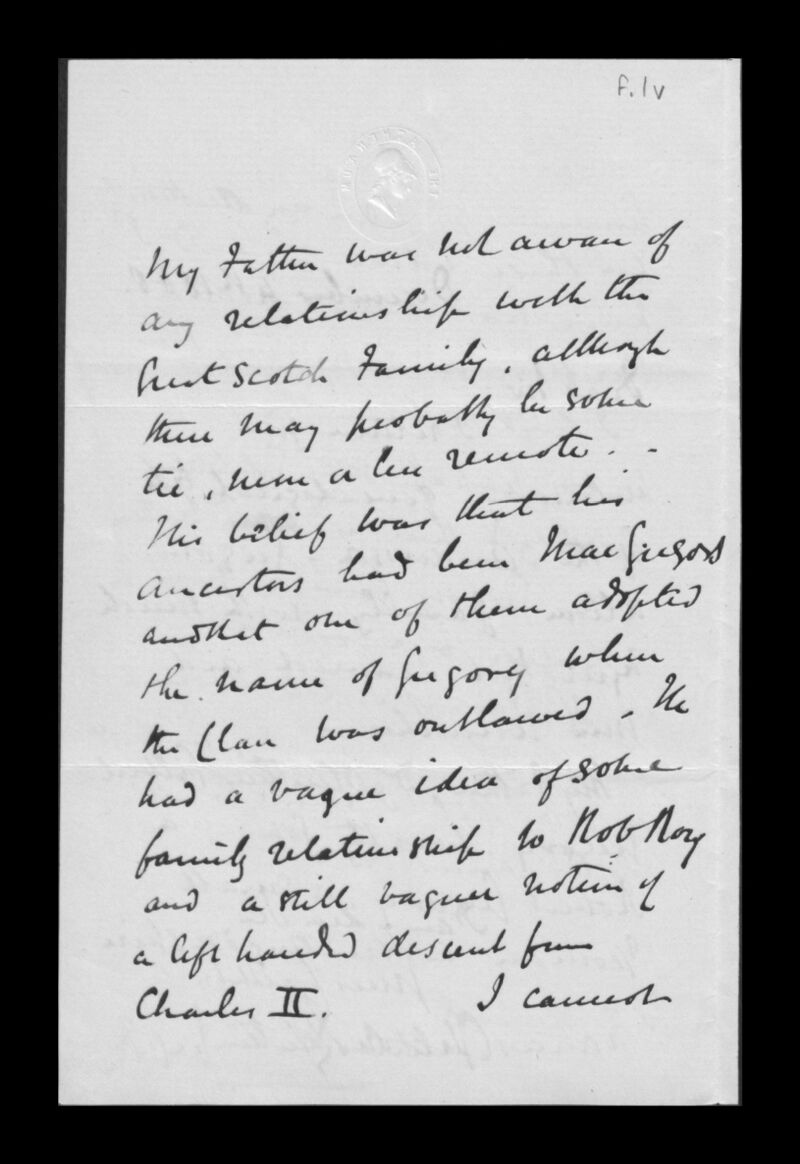 f.1v
THE ATHENÆUM
My Father was not aware of
any relationship with the
Great Scotch Family, although
there may probably be some
tie, more or less remote. -
His belief was that his
ancestors had been MacGregors
and that one of them adopted
the name of Gregory when
the Clan was outlawed - He
had a vague idea of some
family relationship to Rob Roy
and a still vaguer notion of
a left handed descent from
Charles II. I cannot